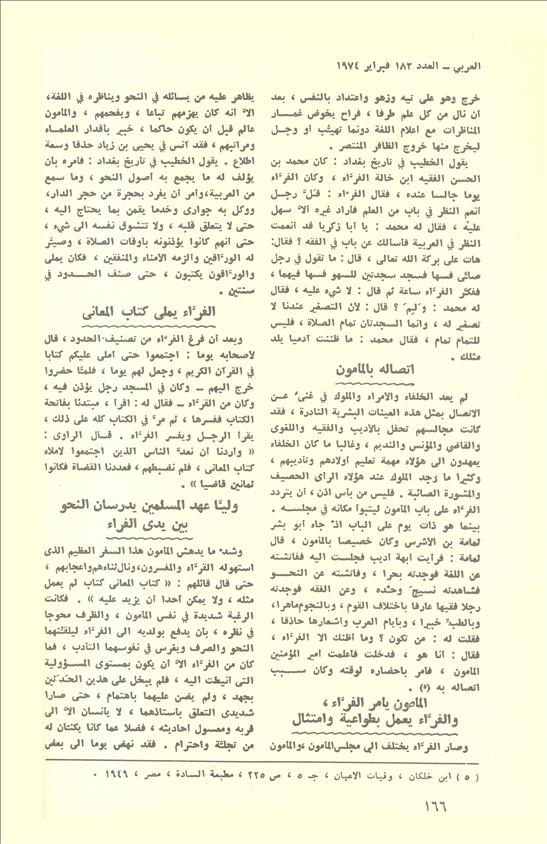 العربي – العدد ١٨٣ فبراير ١٩٧٤
خرج وهو على تيه وزهو واعتداد بالنفس ، بعد
ان نال من كل علم طرفا ، فراح يخوض غمار
المناظرات مع اعلام اللغة دونما تهيّب او وجل
ليخرج منها خروج الظافر المنتصر .
يقول الخطيب في تاريخ بغداد : كان محمد بن
الحسن الفقيه ابن خالة الفرّاء ، وكان الفرّاء
يوما جالسا عنده ، فقال الفرّاء : قلّ رجل
انعم النظر في باب من العلم فاراد غيره الاّ سهل
عليه ، فقال له محمد : يا ابا زكريا قد انعمت
النظر في العربية فأسالك عن باب في الفقه ؟ فقال:
هات على بركة الله تعالى ، قال : ما تقول في رجل
صلّى فسها فسجد سجدتين للسهو فسها فيهما ،
ففكّر الفرّاء ساعة ثم قال : لا شيء عليه ، فقال
له محمد : وليم َ ؟ قال : لأن التصغير عندنا لا
تصغير له ، وانما السجدتان تمام الصلاة ، فليس
للتمام تمام ، فقال محمد : ما ظننت آدميا يلد
مثلك .
اتصاله بالمأمون
لم يعد الخلفاء والامراء والملوك في غنىً عن
الاتصال بمثل هذه العينات البشرية النادرة ، فقد
كانت مجالسهم تحفل بالاديب والفقيه واللغوى
والقاضي والمؤنس والنديم ، وغالبا ما كان الخلفاء
يعهدون الى هؤلاء مهمة تعليم اولادهم وتأديبهم ،
وكثيرا ما وجد الملوك عند هؤلاء الرأى الحصيف
والمشورة الصائبة . فليس من بأس اذن ، ان يتردد
الفرّاء على باب المأمون ليتبوأ مكانه في مجلسه .
بينما هو ذات يوم على الباب اذ جاء أبو بشر
ثمامة بن الاشرس وكان خصيصا بالمأمون ، قال
ثمامة : فرأيت أبهة أديب فجلست اليه ففاتشته
عن اللغة فوجدته بحرا ، وفاتشته عن النحو
فشاهدته نسيج َ وحده ، وعن الفقه فوجدته
رجلا فقيها عارفا باختلاف القوم ، وبالنجوم ماهرا،
وبالطب ّ خبيرا ، وبأيام العرب وأشعارها حاذقا ،
فقلت له : من تكون ؟ وما أظنك الا الفرّاء ،
فقال : أنا هو ، فدخلت فأعلمت أمير المؤمنين
المأمون ، فأمر باحضاره لوقته وكان سبب
اتصاله به (٥) .
المأمون يأمر الفرّاء ،
والفرّاء يعمل بطواعية وامتثال
وصار الفرّاء يختلف الى مجلس المأمون ،والمأمون
يظاهر عليه من يسائله في النحو ويناظره في اللغة،
الاّ انه كان يهزمهم تباعا ، ويفحمهم ، والمأمون
عالم قبل أن يكون حاكما ، خبير بأقدار العلماء
ومراتبهم ، فقد آنس في يحيى بن زياد حذقا وسعة
اطلاع . يقول الخطيب في تاريخ بغداد : فأمره بأن
يؤلف له ما يجمع به أصول النحو ، وما سمع
من العربية،وأمر أن يفرد بحجرة من حجر الدار،
ووكل به جوارى وخدما يقمن بما يحتاج اليه ،
حتى لا يتعلق قلبه ، ولا تتشوق نفسه الى شيء ،
حتى انهم كانوا يؤذنونه بأوقات الصلاة ، وصيّر
له الورّاقين والزمه الامناء والمنفقين ، فكان يملى
والورّاقون يكتبون ، حتى صنف الحدود في
سنتين .
الفرّاء يملى كتاب المعانى
وبعد أن فرغ الفرّاء من تصنيف الحدود ، قال
لأصحابه يوما : اجتمعوا حتى املى عليكم كتابا
في القرآن الكريم ، وجعل لهم يوما ، فلمّا حضروا
خرج اليهم – وكان في المسجد رجل يؤذن فيه ،
وكان من القرّاء – فقال له : اقرأ ، مبتدئا بفاتحة
الكتاب ففسرها ، ثم مرّ في الكتاب كله على ذلك ،
يقرأ الرجل ويفسر الفرّاء . قال الراوى :
« وأردنا أن نعدّ الناس الذين اجتمعوا لاملاء
كتاب المعانى ، فلم نضبطهم ، فعددنا القضاة فكانوا
ثمانين قاضيا » .
وليّا عهد المسلمين يدرسان النحو
بين يدى الفراء
وشدّ ما يدهش المأمون هذا السفر العظيم الذى
استهوله القرّاء والمفسرون،ونال ثناءهم واعجابهم ،
حتى قال قائلهم : « كتاب المعانى كتاب لم يعمل
مثله ، ولا يمكن أحدا أن يزيد عليه » . فكانت
الرغبة شديدة في نفس المأمون ، والظرف محوجا
في نظره ، بأن يدفع بولديه الى الفرّاء ليلقّنهما
النحو والصرف ويغرس في نفوسهما التأدب ، فما
كان من الفرّاء الاّ أن يكون بمستوى المسؤولية
التى أنيطت اليه ، فلم يبخل على هذين الحدثين
بجهد ، ولم يضن عليهما باهتمام ، حتى صارا
شديدى التعلق بأستاذهما ، لا يأنسان الاّ الى
قربه ومعسول أحاديثه ، فضلا عما كانا يكنّان له
من تجلّة واحترام . فقد نهض يوما الى بعض
(٥) ابن خلكان ، وفيات الاعيان ، جـ ٥ ، ص ٢٢٥ ، مطبعة السعادة ، مصر ، ١٩٤٩ .
١٦٦